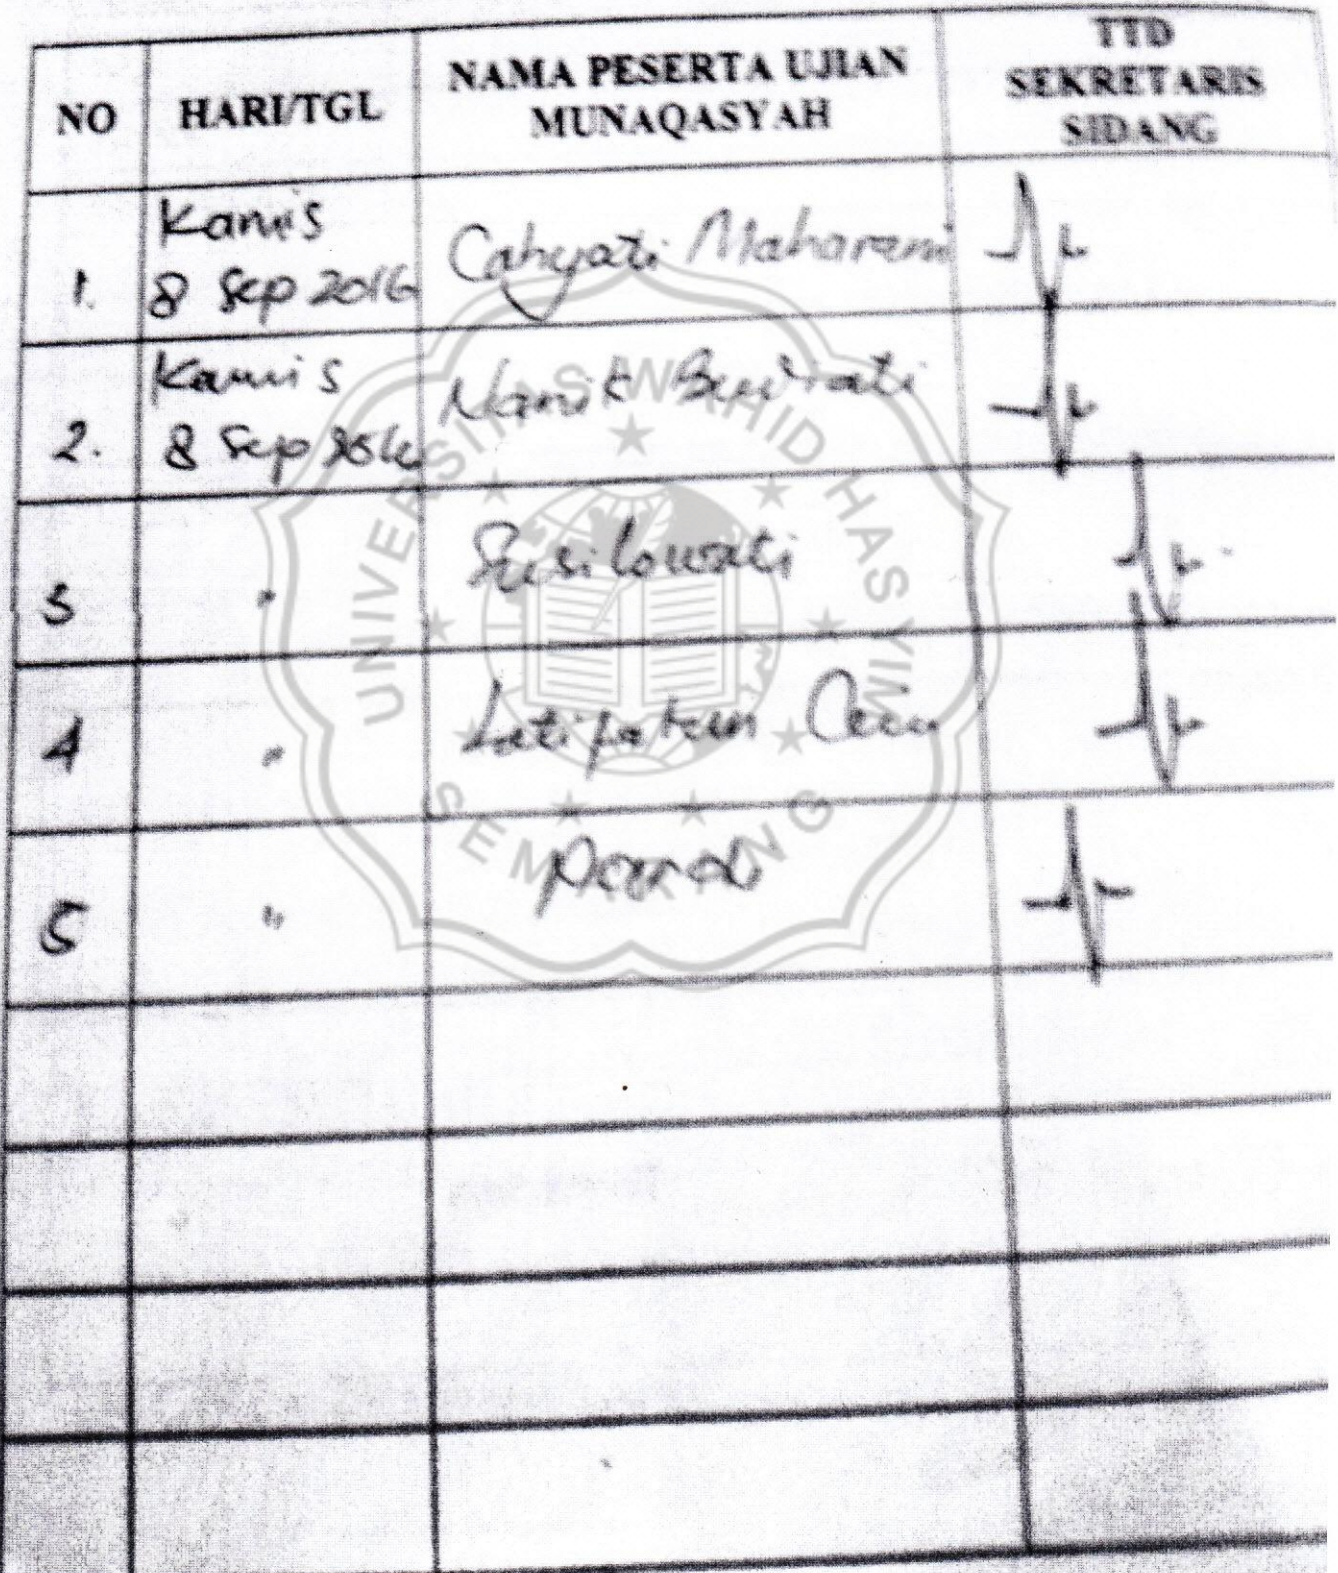 NO
HARI/TGL
NAMA PESERTA UJIAN
MUNAQASYAH
TTD
SEKRETARIS
SIDANG
1.
Kamis
8 Sep 2016
Cahyati Maharani
2.
Kamis
8 Sep 2016
Nanik
3
"
Susilowati
4
"
Latipatun
5
"
UNIVERSITAS WAHID HASYIM
SEMARANG